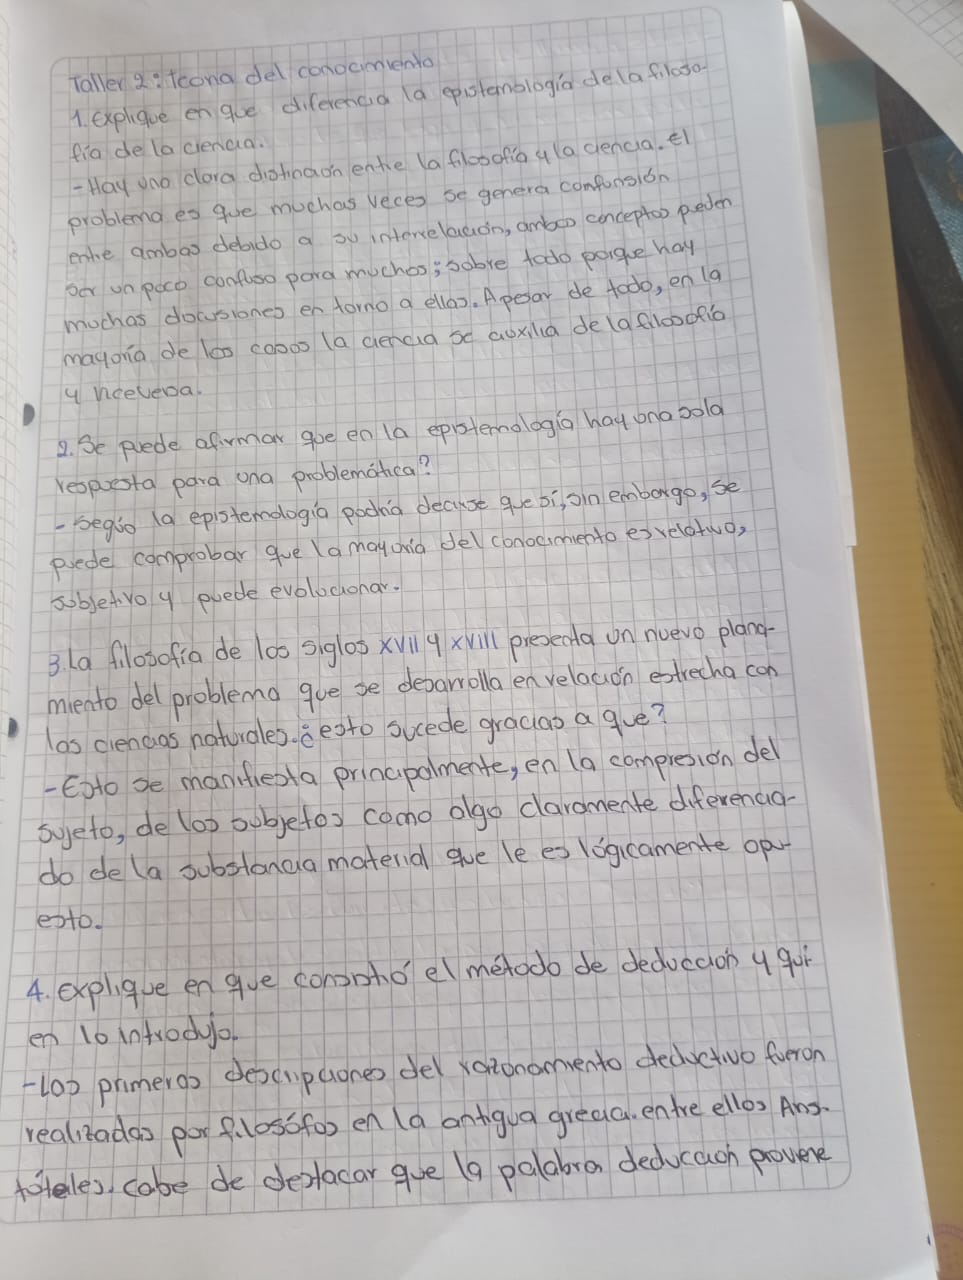 Taller 2: teoria del conocimiento
1. Explique en que diferencia la epistemología de la filoso-
fía de la ciencia.
- Hay una clara distinción entre la filosofía y la ciencia. El
problema es que muchas veces se genera confunsión
entre ambas debido a su interrelación, ambos conceptos pueden
ser un poco confuso para muchos; sobre todo porque hay
muchas discusiones en torno a ellas. Apesar de todo, en la
mayoría de los casos la ciencia se auxilia de la filosofía
y viceversa.
2. Se puede afirmar que en la epistemología hay una sola
respuesta para una problemática?
- Según la epistemología podría decirse que sí, sin embargo, se
puede comprobar que la mayoría del conocimiento es relativo,
subjetivo y puede evolucionar.
3. La filosofía de los siglos XVII y XVIII presenta un nuevo plana-
miento del problema que se desarrolla en relación estrecha con
las ciencias naturales. ¿esto sucede gracias a que?
- Esto se manifiesta principalmente, en la compresión del
sujeto, de los subjetos como algo claramente diferencia-
do de la substancia material que le es lógicamente opu-
esto.
4. explique en que consistió el método de deducción y qui-
en lo introdujo.
- Las primeras descripciones del razonamiento deductivo fueron
realizadas por filosófos en la antigua grecia. entre ellos Aris-
tóteles. cabe de destacar que la palabra deducción proviene